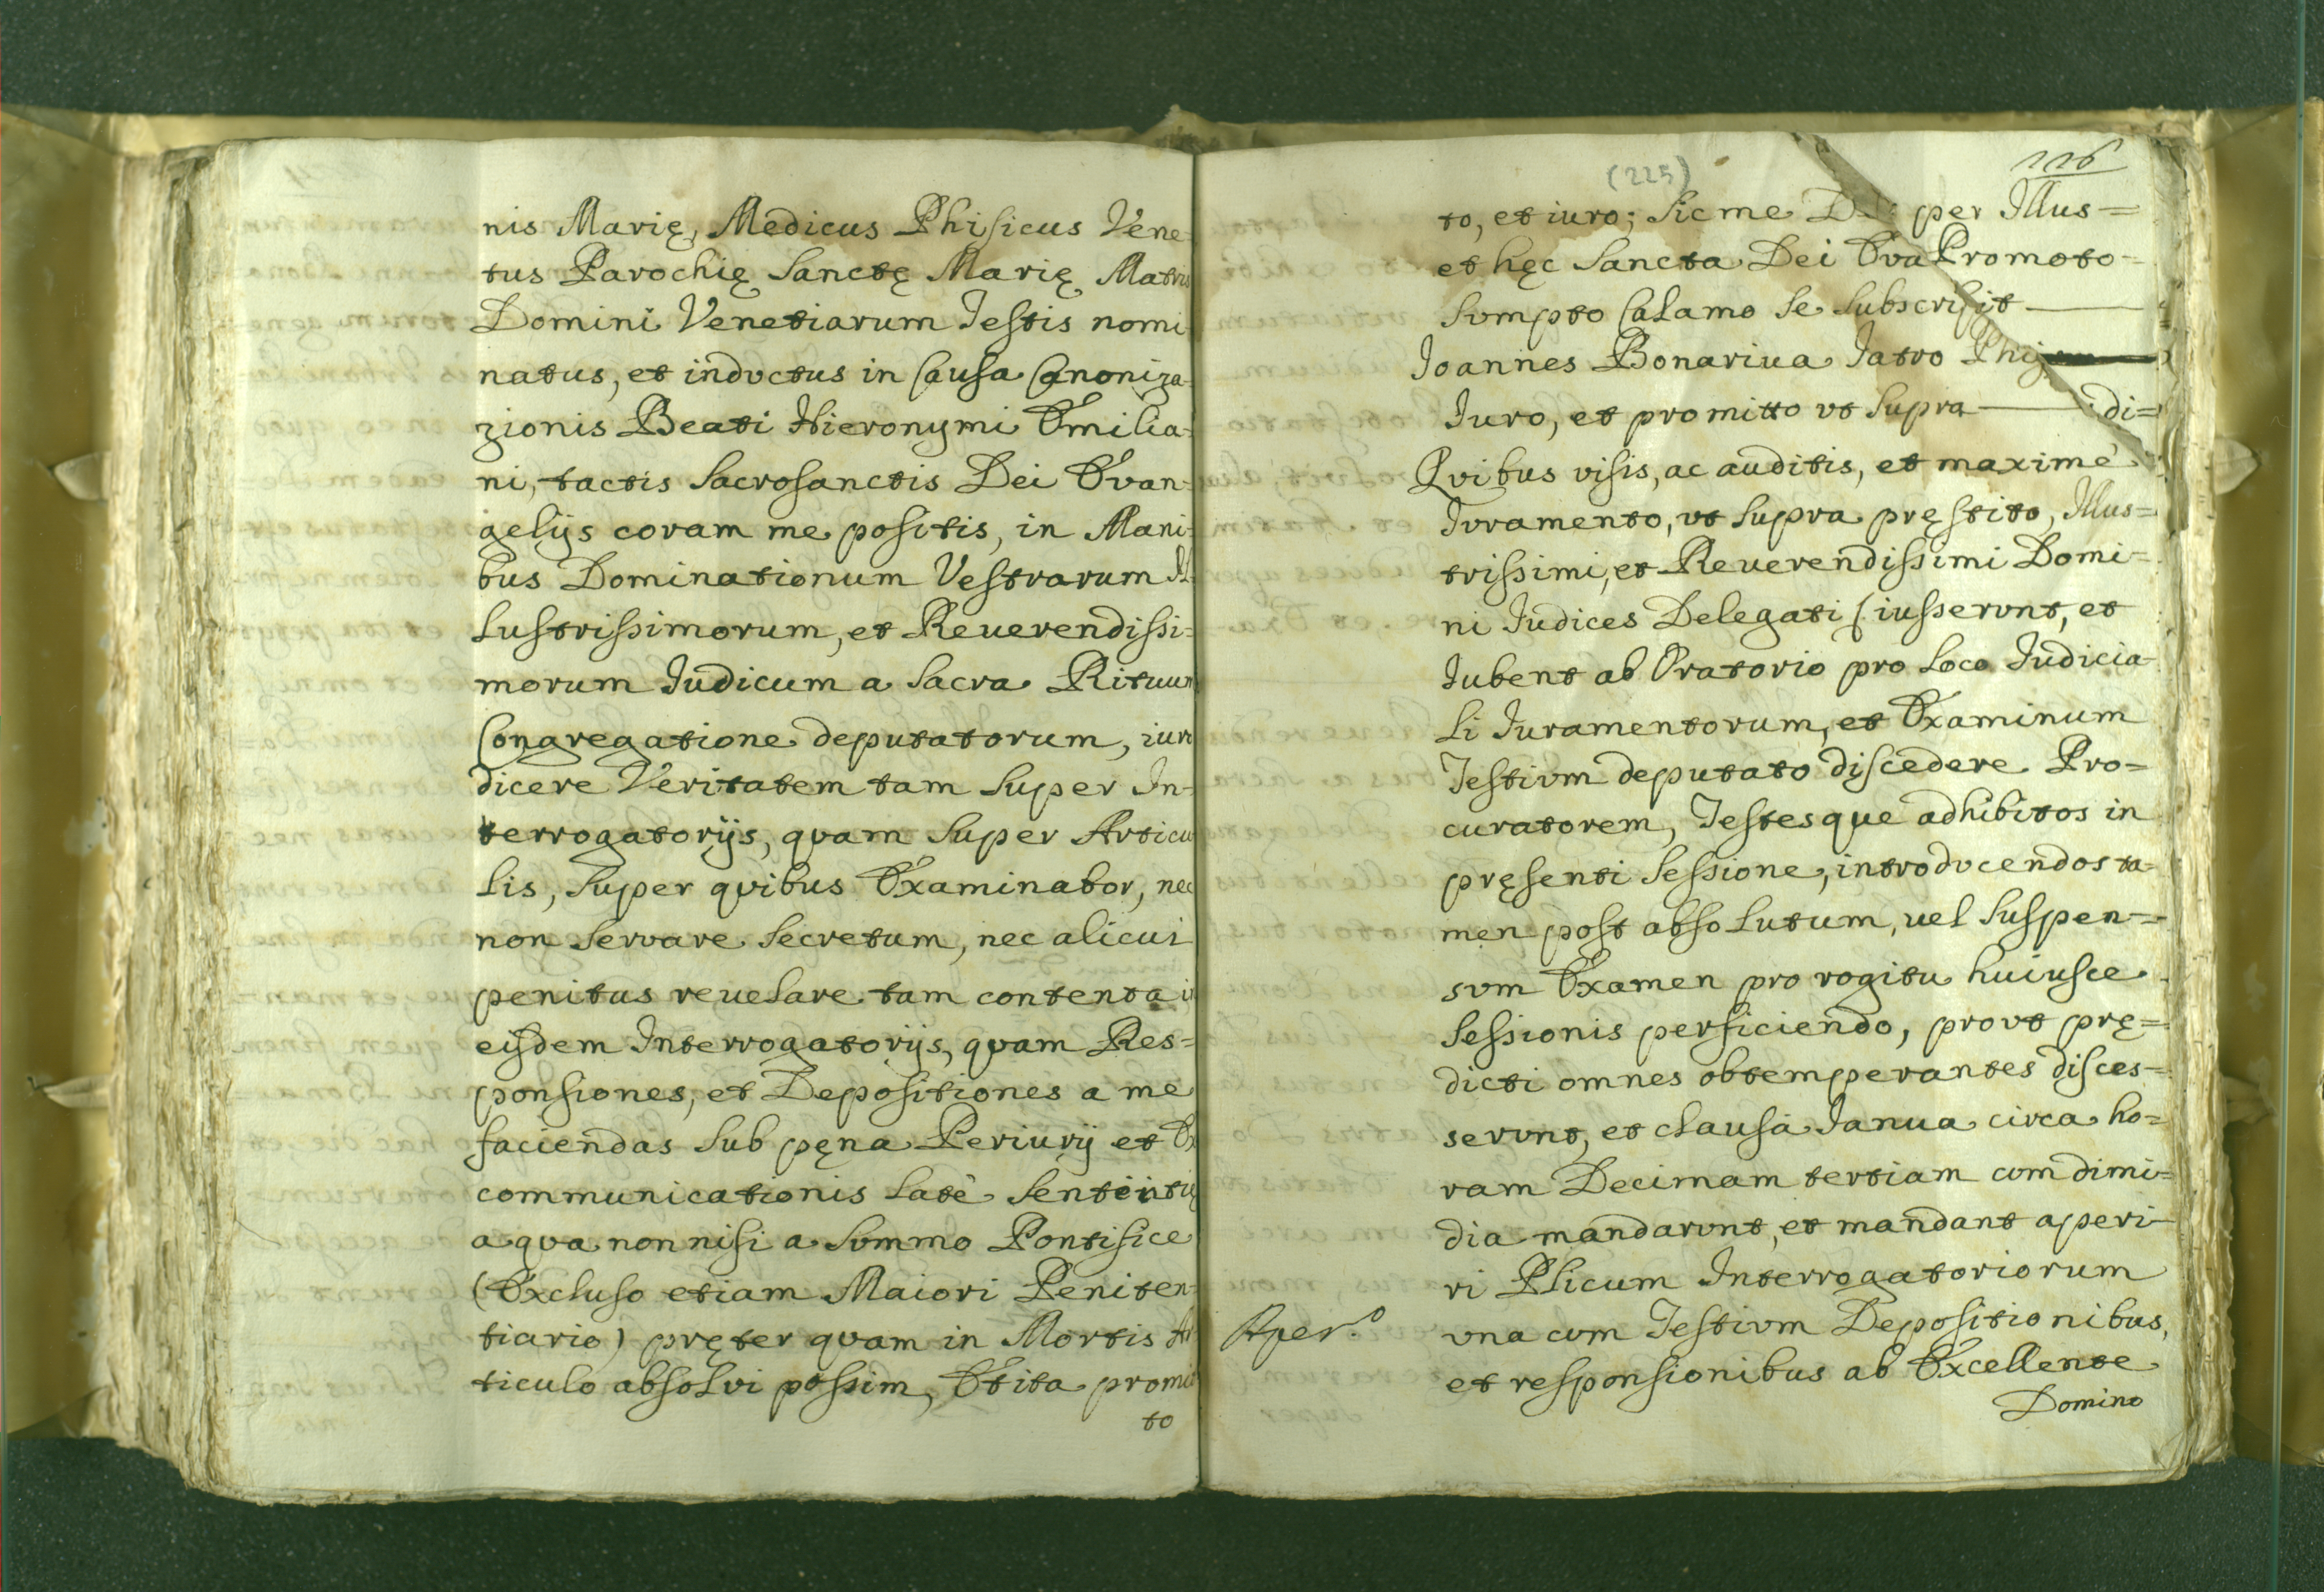 nis Marię, Medicus Phisicus Vene-
tus Parochię Sanctę Marię Matris
Domini Venetiarum Testis nomi-
natus, et inductus in Causa Canoniza-
zionis Beati Hieronymi Emilia-
ni, tactis Sacrosanctis Dei Evan-
gelijs coram me positis, in Mani-
bus Dominationum Vestrarum Il-
lustrissimorum, et Reuerendissi=
morum Judicum a Sacra Rituum
Congregatione deputatorum, iuro
dicere Veritatem tam super In-
terrogatorijs, quam super Articu
lis, super quibus Examinabor, nec
non servare secretum, nec alicui
penitus reuelare tam contenta in
eisdem Interrogatorijs, quam Res=
ponsiones, et Depositiones a me
faciendas sub pęna Periurij et Ex
communicationis latè sententię
a qua non nisi a Summo Pontifice
(Excluso etiam Maiori Peniten-
tiario) pręter quam in Mortis Ar
ticulo absolvi possim, Et ita promit
to
(225)
226
to, et iuro; sic me per Illus=
et hęc Sancta Dei Eva Promoto-
Sumpto Calamo se subscrisit
Joannes Bonariua Jatro
Juro, et promitto vt supra di=
Quibus visis, ac auditis, et maximè
Juramento, vt supra pręstito, Illus=
trissimi, et Reuerendissimi Domi-
ni Judices Delegati iusserunt, et
Jubent ab Oratorio pro loco Judicia-
li Juramentorum, et Examinum
Testium deputato discedere Pro=
curatorem, Testesque adhibitos in
pręsenti sessione, introducendos ta-
men post absolutum, uel suspen=
sum Examen pro rogitu huiusce
sessionis perficiendo, prout prę=
dicti omnes obtemperantes disces-
serunt, et clausa Janua circa ho=
ram Decimam tertiam cum dimi=
dia mandarunt, et mandant aperi-
ri Plicum Interrogatoriorum
Aper.º
una cum Testium Depositionibus,
et responsionibus ab Excellente
Domino